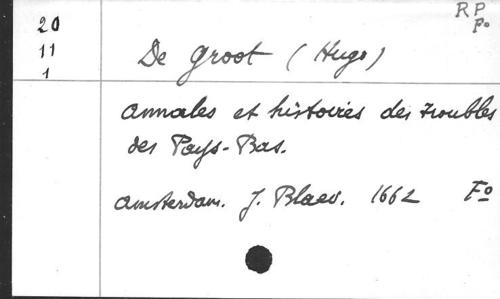 RP
Fo
20
11
1
De Groot (Hugo)
Annales et histoires des troubles
des Pays-Bas.
Amsterdam. J. Blaev. 1662 Fo